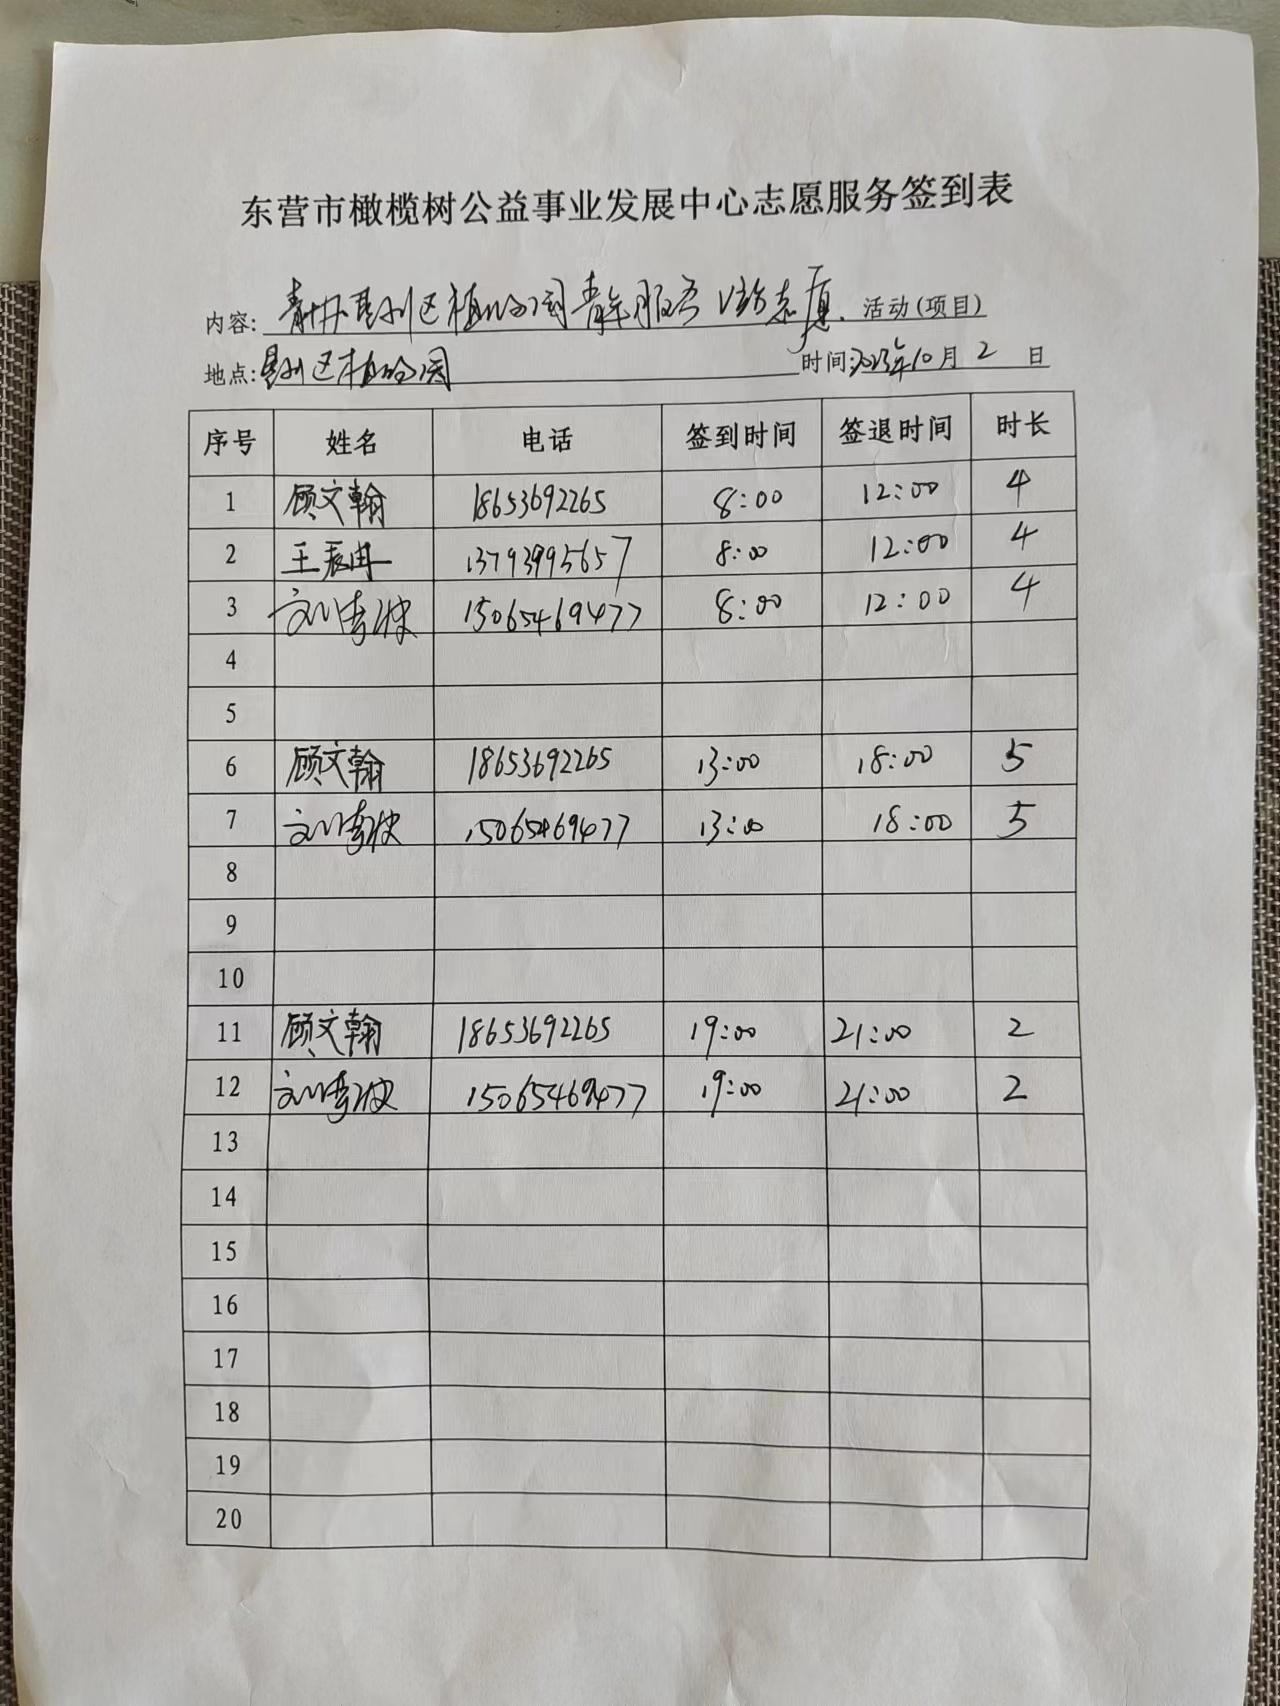 东营市橄榄树公益事业发展中心志愿服务签到表
内容: 区植物园青年服务 志愿 活动(项目)
地点: 区植物园 时间:2023年10月2日
序号 姓名 电话 签到时间 签退时间 时长
1 顾文翰 18653692265 8:00 12:00 4
2 王辰冉 13793995657 8:00 12:00 4
3 15065469477 8:00 12:00 4
4
5
6 顾文翰 18653692265 13:00 18:00 5
7 15065469477 13:00 18:00 5
8
9
10
11 顾文翰 18653692265 19:00 21:00 2
12 15065469477 19:00 21:00 2
13
14
15
16
17
18
19
20